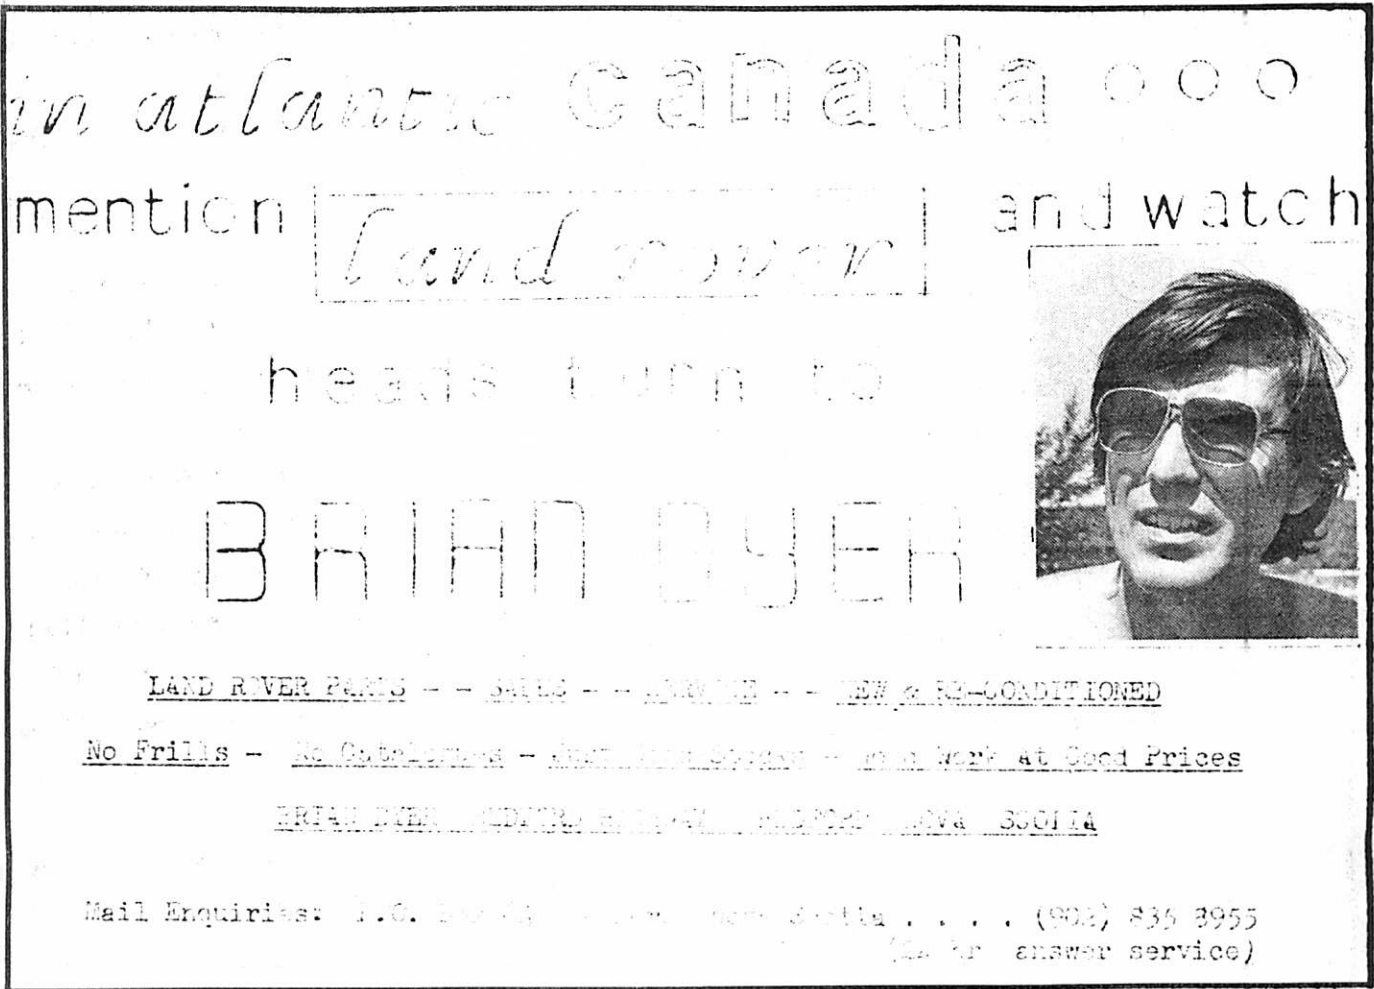 in atlantic canada ooo
mention land rover and watch
heads turn to
BRIAN DYER
LAND ROVER PARTS - - SALES - - SERVICE - - NEW & RE-CONDITIONED
No Frills - No Catalogues - - Good Work At Good Prices
BRIAN DYER BEDFORD HIGHWAY BEDFORD NOVA SCOTIA
Mail Enquiries: P.O. Nova Scotia . . . . (902) 835 8955
(24 hr answer service)